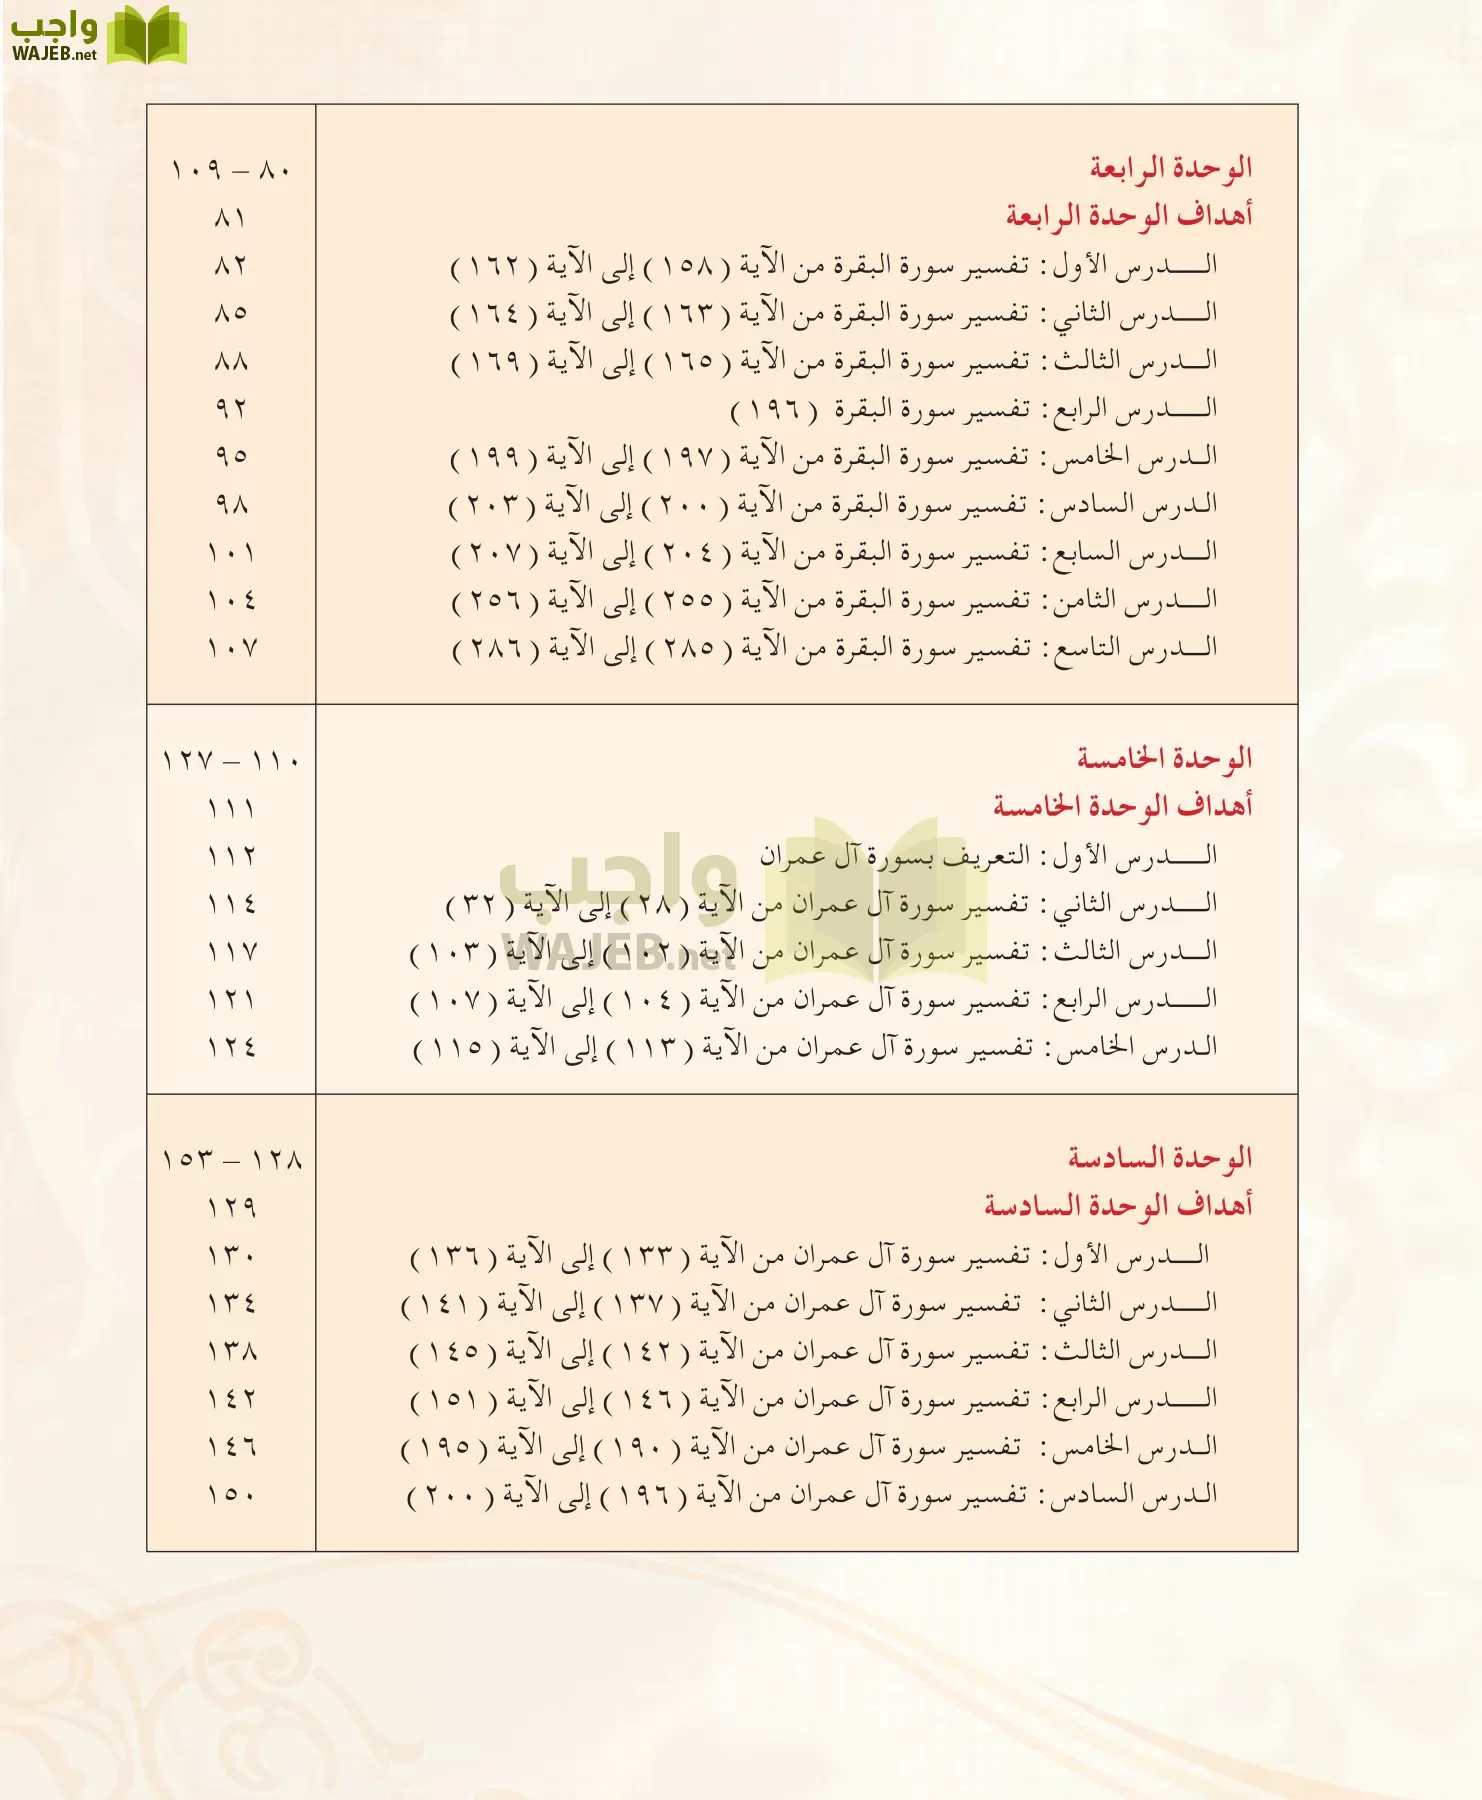 واجب
WAJEB.net
الوحدة الرابعة ٨٠ – ١٠٩
أهداف الوحدة الرابعة ٨١
الـــــدرس الأول: تفسير سورة البقرة من الآية (١٥٨) إلى الآية (١٦٢) ٨٢
الـــــدرس الثاني: تفسير سورة البقرة من الآية (١٦٣) إلى الآية (١٦٤) ٨٥
الـــــدرس الثالث: تفسير سورة البقرة من الآية (١٦٥) إلى الآية (١٦٩) ٨٨
الـــــدرس الرابع: تفسير سورة البقرة (١٩٦) ٩٢
الـــدرس الخامس: تفسير سورة البقرة من الآية (١٩٧) إلى الآية (١٩٩) ٩٥
الـــدرس السادس: تفسير سورة البقرة من الآية (٢٠٠) إلى الآية (٢٠٣) ٩٨
الـــدرس السابع: تفسير سورة البقرة من الآية (٢٠٤) إلى الآية (٢٠٧) ١٠١
الـــدرس الثامن: تفسير سورة البقرة من الآية (٢٥٥) إلى الآية (٢٥٦) ١٠٤
الـــدرس التاسع: تفسير سورة البقرة من الآية (٢٨٥) إلى الآية (٢٨٦) ١٠٧
الوحدة الخامسة ١١٠ – ١٢٧
أهداف الوحدة الخامسة ١١١
الـــــدرس الأول: التعريف بسورة آل عمران ١١٢
الـــــدرس الثاني: تفسير سورة آل عمران من الآية (٢٨) إلى الآية (٣٢) ١١٤
الـــــدرس الثالث: تفسير سورة آل عمران من الآية (١٠٢) إلى الآية (١٠٣) ١١٧
الـــــدرس الرابع: تفسير سورة آل عمران من الآية (١٠٤) إلى الآية (١٠٧) ١٢١
الـــدرس الخامس: تفسير سورة آل عمران من الآية (١١٣) إلى الآية (١١٥) ١٢٤
واجب
WAJEB.net
الوحدة السادسة ١٢٨ – ١٥٣
أهداف الوحدة السادسة ١٢٩
الـــــدرس الأول: تفسير سورة آل عمران من الآية (١٣٣) إلى الآية (١٣٦) ١٣٠
الـــــدرس الثاني: تفسير سورة آل عمران من الآية (١٣٧) إلى الآية (١٤١) ١٣٤
الـــــدرس الثالث: تفسير سورة آل عمران من الآية (١٤٢) إلى الآية (١٤٥) ١٣٨
الـــــدرس الرابع: تفسير سورة آل عمران من الآية (١٤٦) إلى الآية (١٥١) ١٤٢
الـــدرس الخامس: تفسير سورة آل عمران من الآية (١٩٠) إلى الآية (١٩٥) ١٤٦
الـــدرس السادس: تفسير سورة آل عمران من الآية (١٩٦) إلى الآية (٢٠٠) ١٥٠